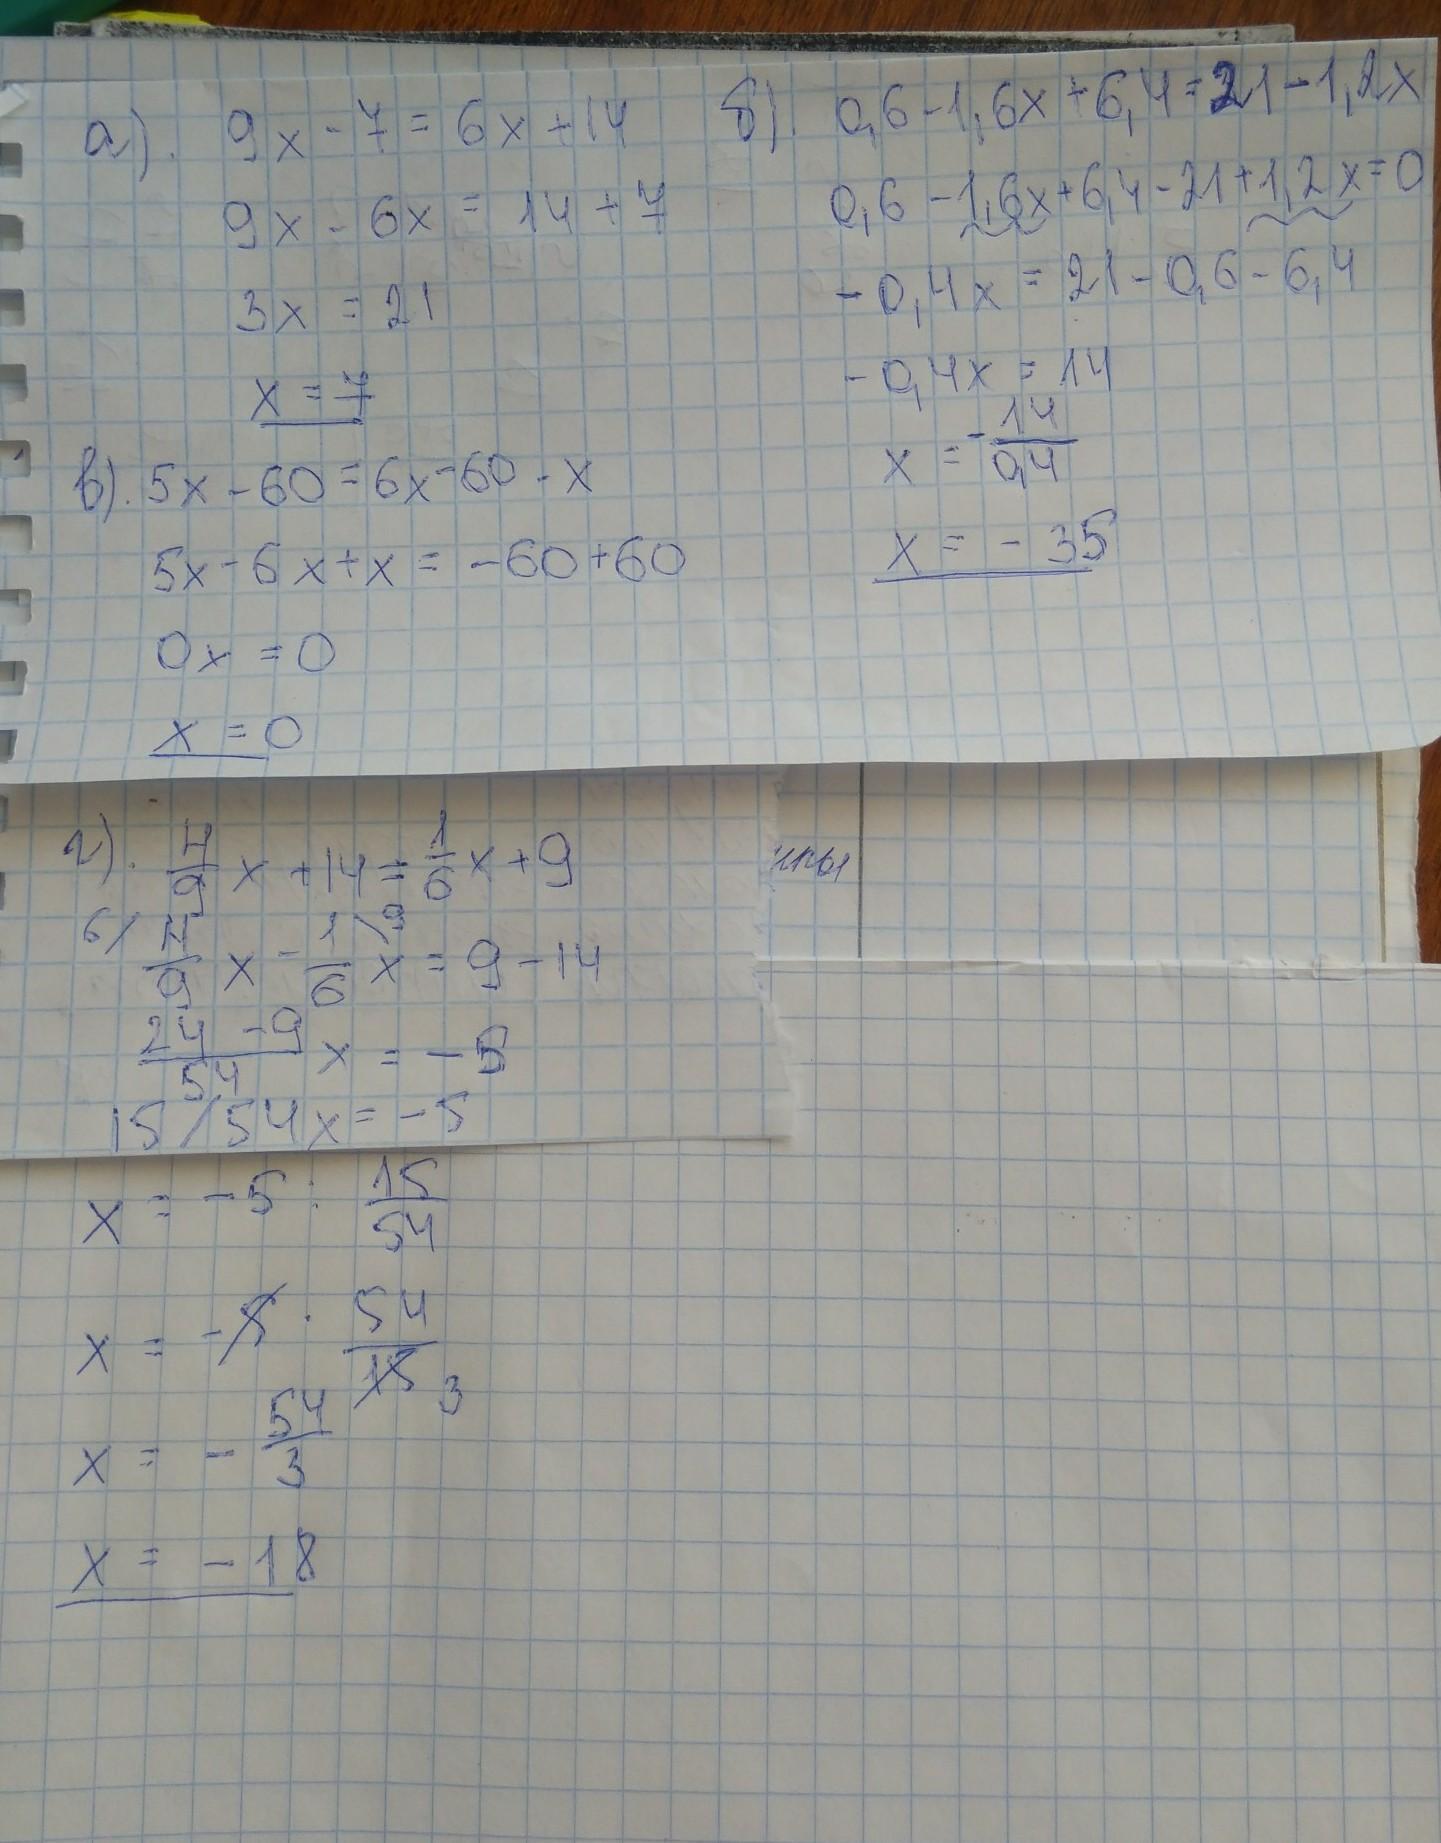 а). 9x - 7 = 6x + 14
9x - 6x = 14 + 7
3x = 21
x = 7
б). 0,6 - 1,6x + 6,4 = 21 - 1,2x
0,6 - 1,6x + 6,4 - 21 + 1,2x = 0
- 0,4x = 21 - 0,6 - 6,4
- 0,4x = 14
x = - 14/0,4
x = - 35
в). 5x - 60 = 6x - 60 - x
5x - 6x + x = - 60 + 60
0x = 0
x = 0
г). 4/9 x + 14 = 1/6 x + 9
6/ 4/9 x - 1/6 /9 x = 9 - 14
24 - 9/54 x = - 5
15/54x = - 5
x = - 5 : 15/54
x = - 5 · 54/15 3
x = - 54/3
x = - 18